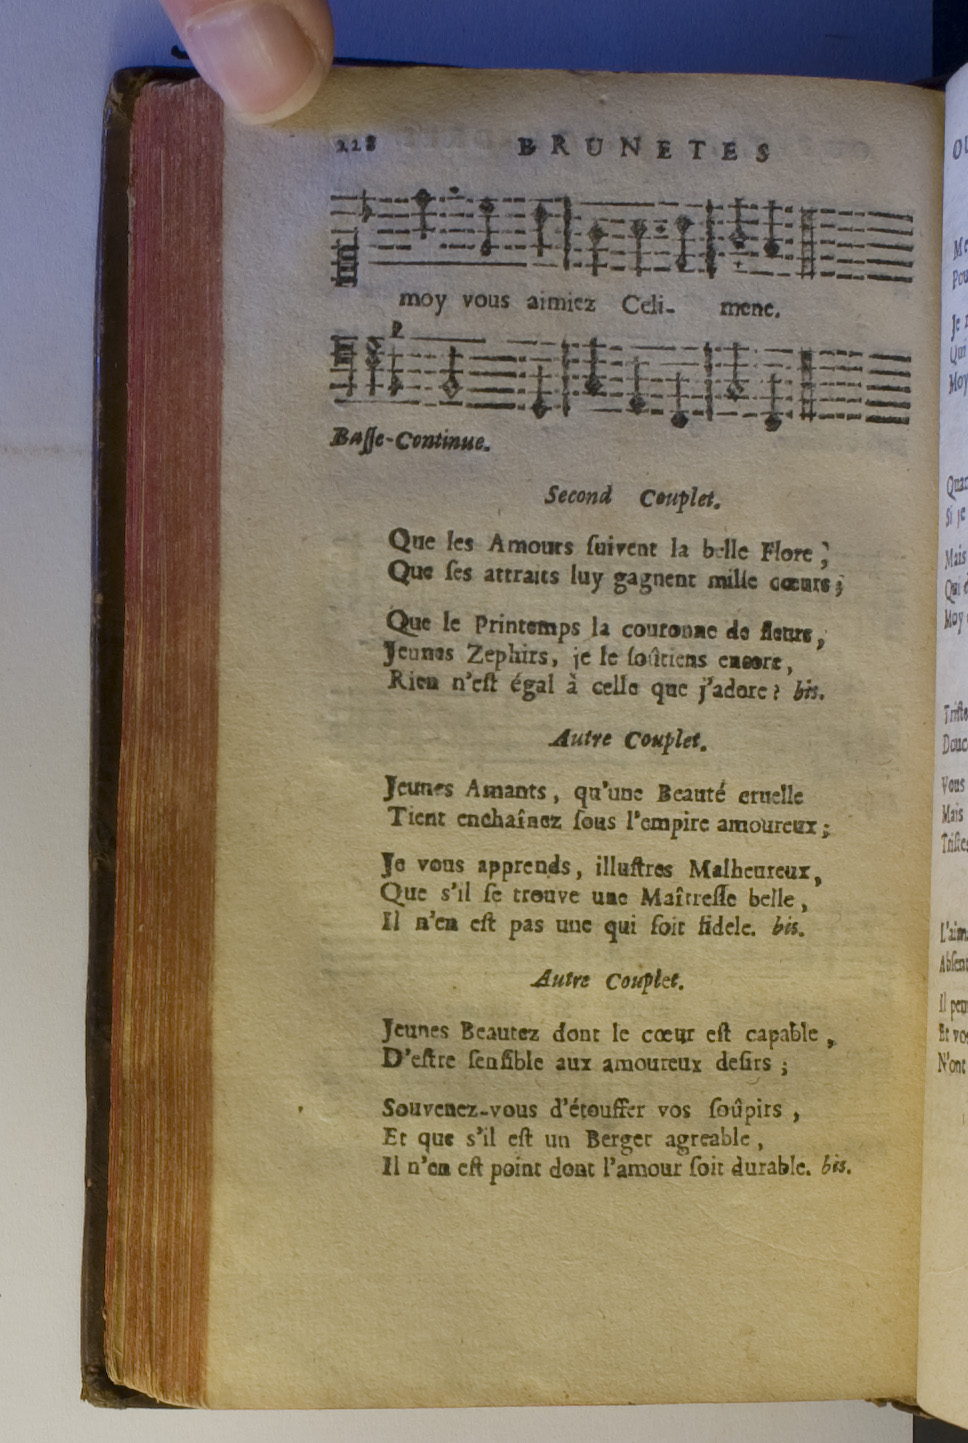 228 BRUNETES
moy vous aimiez Celi- mene.
Baſſe-Continue.
Second Couplet.
Que les Amours ſuivent la belle Flore;
Que ſes attraits luy gagnent mille cœurs;
Que le Printemps la couronne de fleurs,
Jeunes Zephirs, je le ſoûtiens encore,
Rien n'eſt égal à celle que j'adore? bis.
Autre Couplet.
Jeunes Amants, qu'une Beauté cruelle
Tient enchaînez ſous l'empire amoureux;
Je vous apprends, illuſtres Malheureux,
Que s'il ſe trouve une Maîtreſſe belle,
Il n'en eſt pas une qui ſoit fidele. bis.
Autre Couplet.
Jeunes Beautez dont le cœur eſt capable,
D'eſtre ſenſible aux amoureux deſirs;
Souvenez-vous d'étouffer vos ſoûpirs,
Et que s'il eſt un Berger agreable,
Il n'en eſt point dont l'amour ſoit durable. bis.
Je
Qui
Moy
Si je
Mais
Moy
Vous
Mais
Il
Et
N'ont